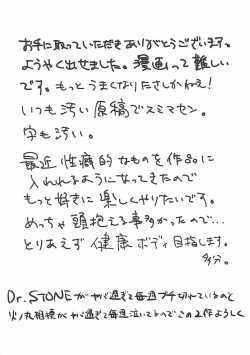 お手に取っていただきありがとうございます。
ようやく出せました。漫画って難しい
です。もっとうまくなりたさしかねぇ!
いつも汚い原稿でスミマセン。
字も汚い。
最近性癖的なものを作品に
入れれるようになってきたので
もっと好きに楽しくやりたいです。
めっちゃ頭抱える事多かったので…
とりあえず健康ボディ目指します。
多分。
Dr.STONEがヤバ過ぎて毎週ブチ切れているのと
火ノ丸相撲がヤバ過ぎて毎週泣いてるのでこの2作ようしく